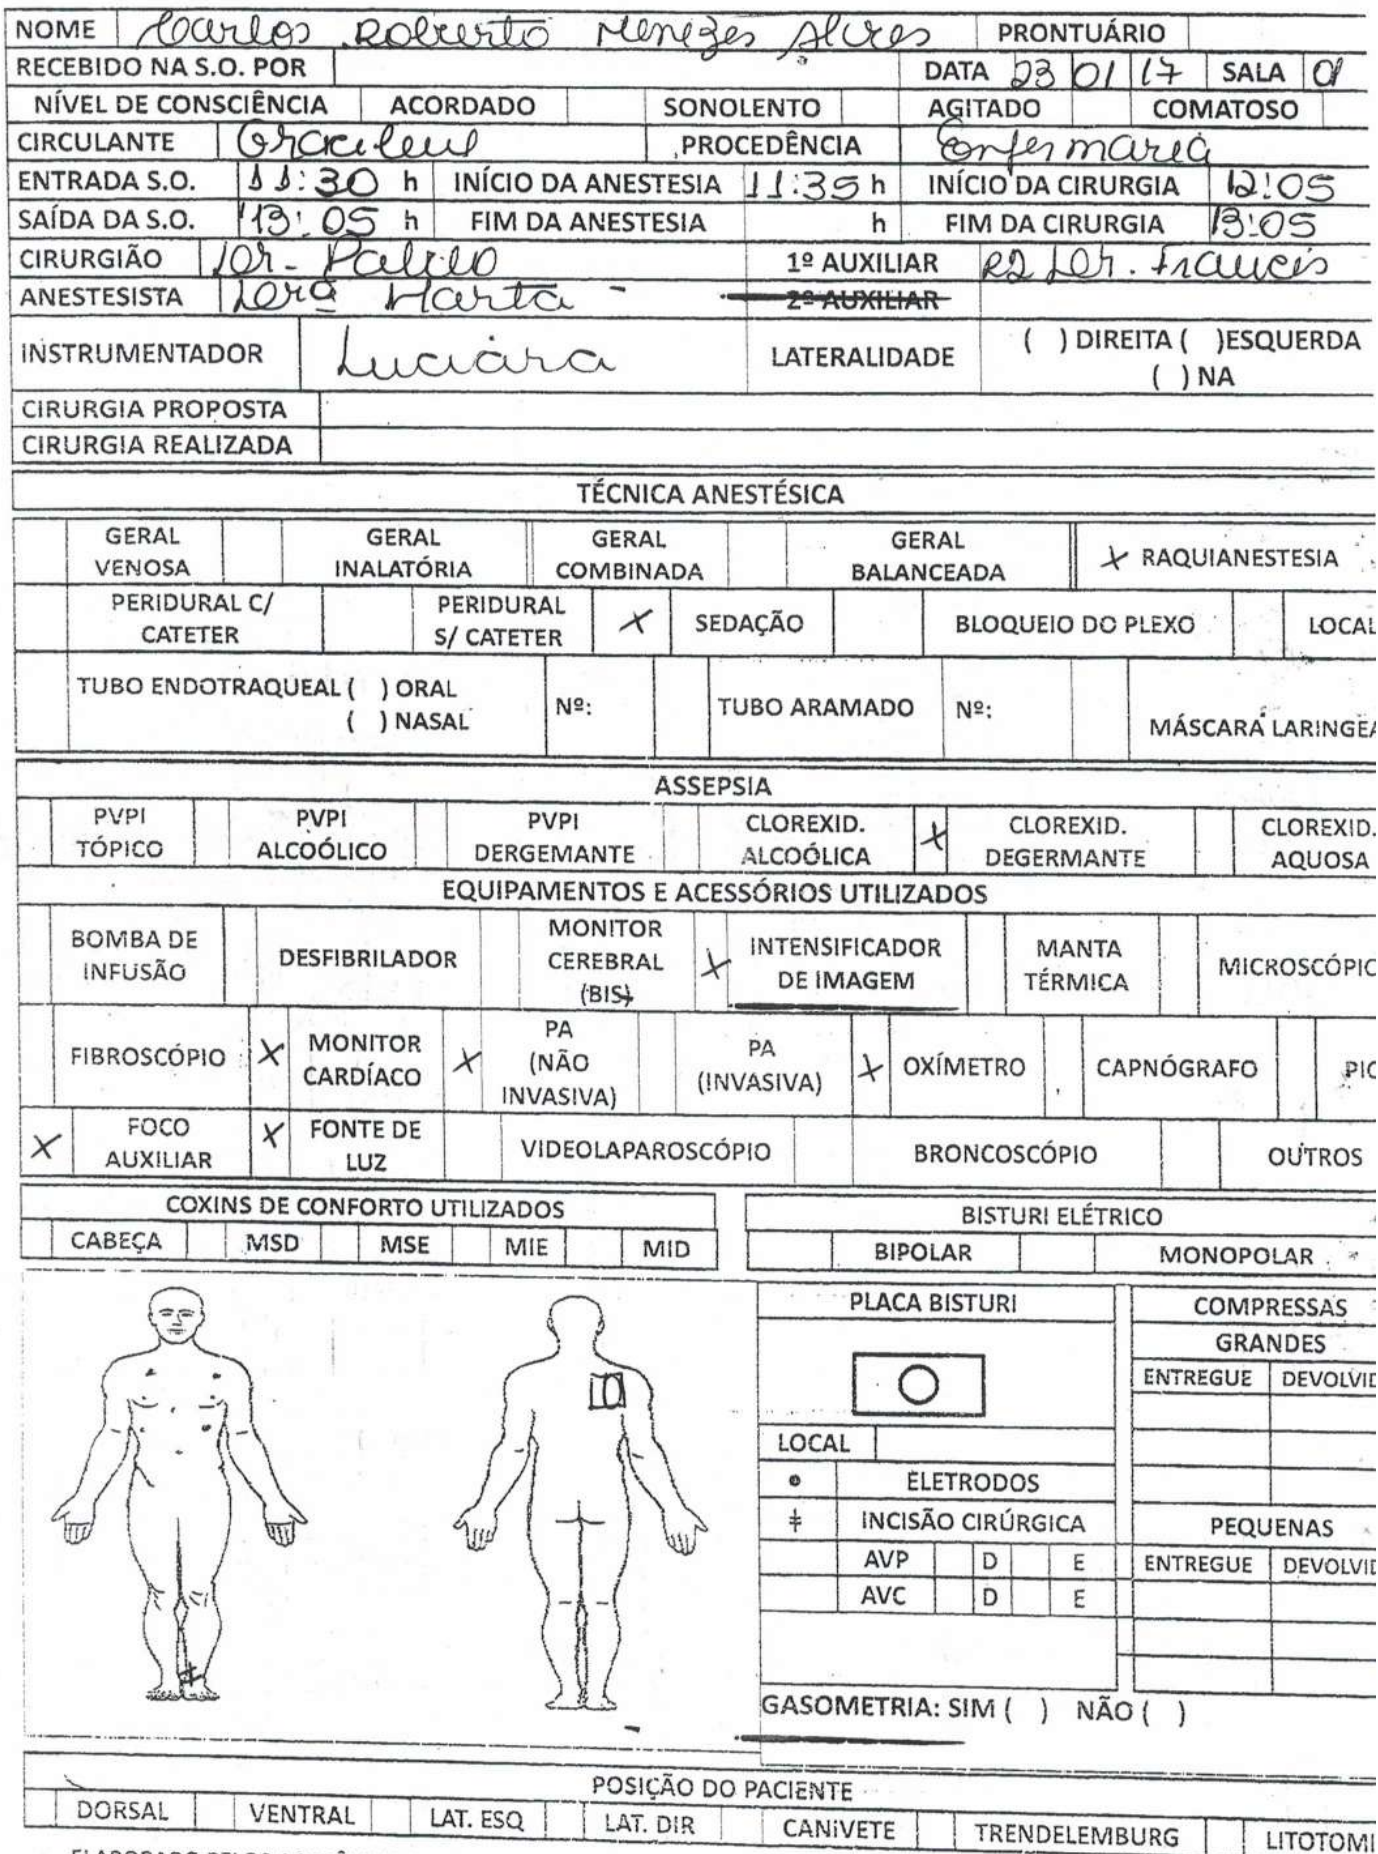 NOME Carlos Roberto Menezes Alves PRONTUÁRIO
RECEBIDO NA S.O. POR DATA 23 01 17 SALA 01
NÍVEL DE CONSCIÊNCIA ACORDADO SONOLENTO AGITADO COMATOSO
CIRCULANTE PROCEDÊNCIA Enfermaria
ENTRADA S.O. 11:30 h INÍCIO DA ANESTESIA 11:35 h INÍCIO DA CIRURGIA 12:05
SAÍDA DA S.O. 13:05 h FIM DA ANESTESIA h FIM DA CIRURGIA 13:05
CIRURGIÃO Dr. Pablo 1º AUXILIAR R2 Dr. Francis
ANESTESISTA Drª Marta - 2º AUXILIAR
INSTRUMENTADOR Luciara LATERALIDADE ( ) DIREITA ( )ESQUERDA
( ) NA
CIRURGIA PROPOSTA
CIRURGIA REALIZADA
TÉCNICA ANESTÉSICA
GERAL VENOSA GERAL INALATÓRIA GERAL COMBINADA GERAL BALANCEADA X RAQUIANESTESIA
PERIDURAL C/ CATETER PERIDURAL S/ CATETER X SEDAÇÃO BLOQUEIO DO PLEXO LOCAL
TUBO ENDOTRAQUEAL ( ) ORAL Nº: TUBO ARAMADO Nº: MÁSCARA LARINGEA
( ) NASAL
ASSEPSIA
PVPI TÓPICO PVPI ALCOÓLICO PVPI DERGEMANTE CLOREXID. ALCOÓLICA X CLOREXID. DEGERMANTE CLOREXID. AQUOSA
EQUIPAMENTOS E ACESSÓRIOS UTILIZADOS
BOMBA DE INFUSÃO DESFIBRILADOR MONITOR CEREBRAL (BIS) X INTENSIFICADOR DE IMAGEM MANTA TÉRMICA MICROSCÓPIO
FIBROSCÓPIO X MONITOR CARDÍACO X PA (NÃO INVASIVA) PA (INVASIVA) X OXÍMETRO CAPNÓGRAFO PIC
X FOCO AUXILIAR X FONTE DE LUZ VIDEOLAPAROSCÓPIO BRONCOSCÓPIO OUTROS
COXINS DE CONFORTO UTILIZADOS BISTURI ELÉTRICO
CABEÇA MSD MSE MIE MID BIPOLAR MONOPOLAR
PLACA BISTURI COMPRESSAS
GRANDES
ENTREGUE DEVOLVID
LOCAL
ELETRODOS
ǂ INCISÃO CIRÚRGICA PEQUENAS
AVP D E ENTREGUE DEVOLVID
AVC D E
GASOMETRIA: SIM ( ) NÃO ( )
POSIÇÃO DO PACIENTE
DORSAL VENTRAL LAT. ESQ LAT. DIR CANIVETE TRENDELEMBURG LITOTOMI